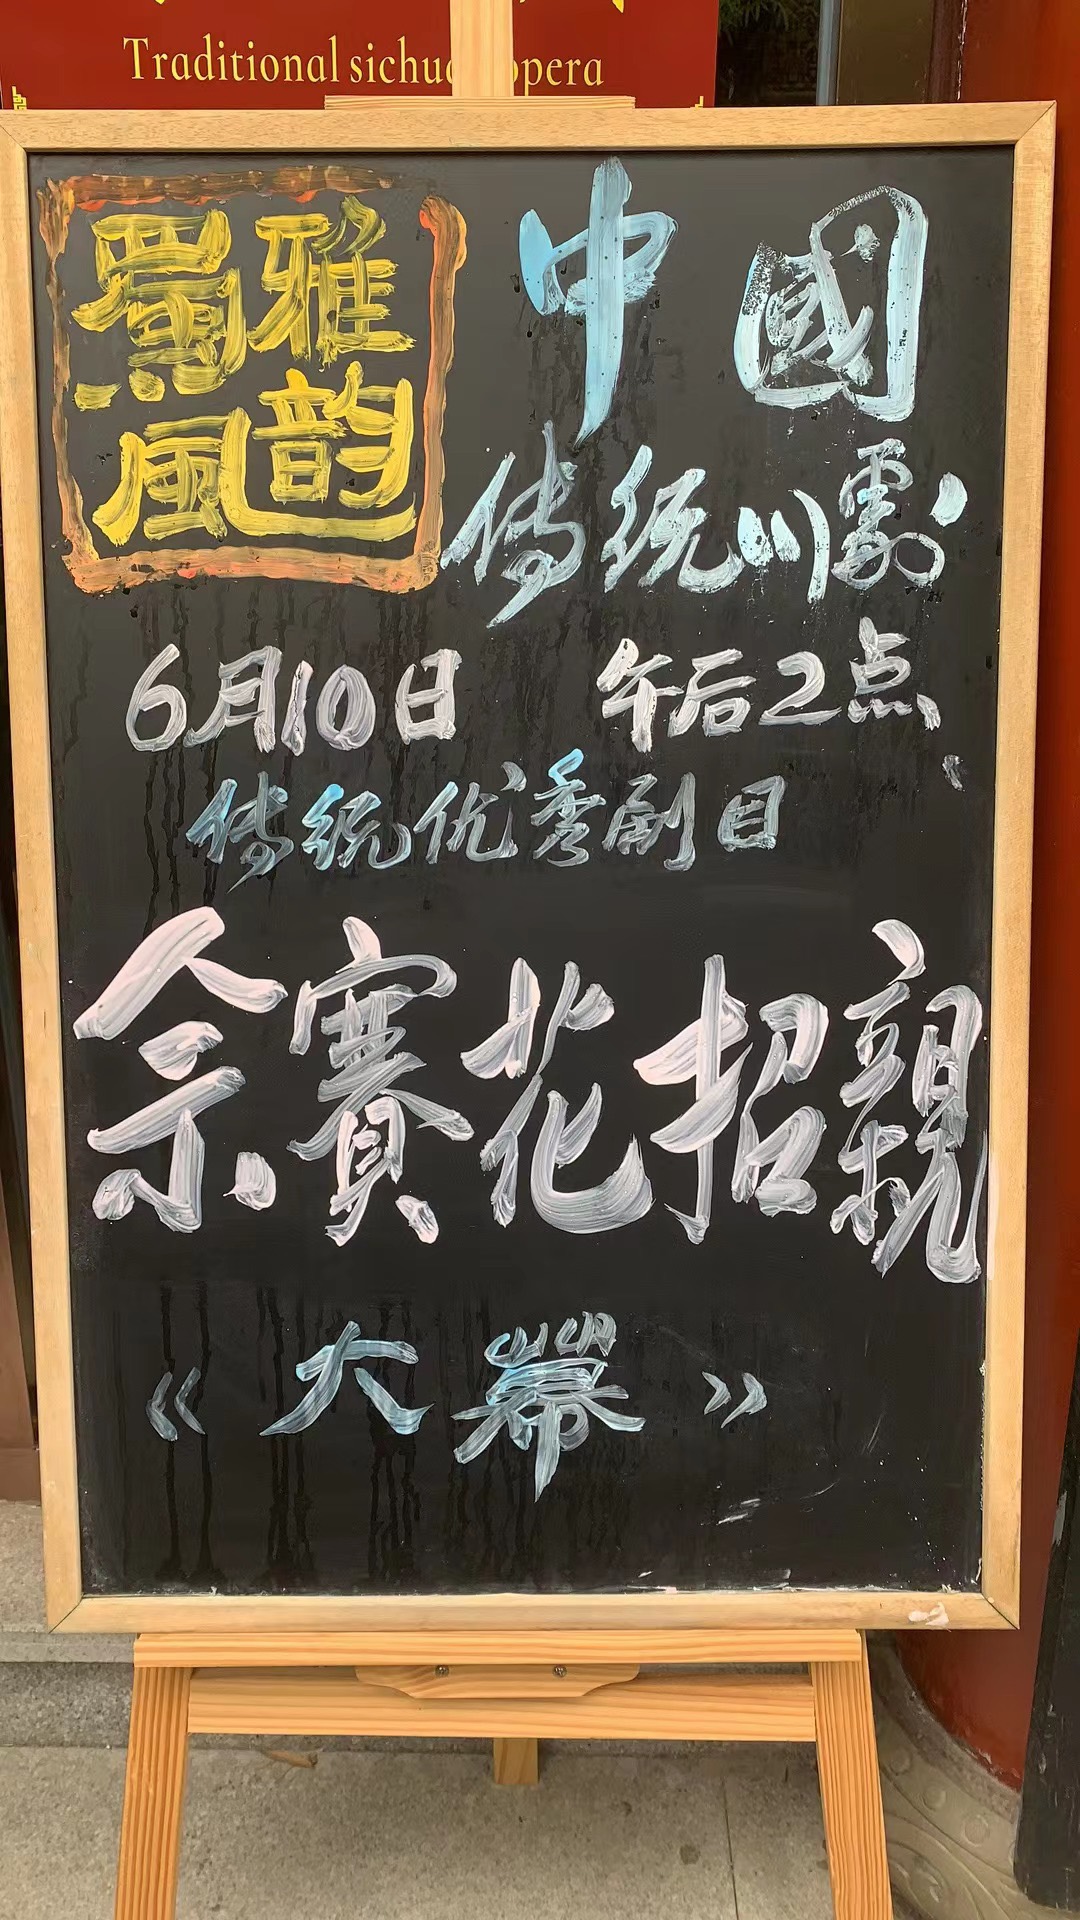 Traditional sichu opera
蜀風
雅韵
中國
傳统川劇
6月10日 午后2点
傳统优秀剧目
佘賽花招親
《大幕》